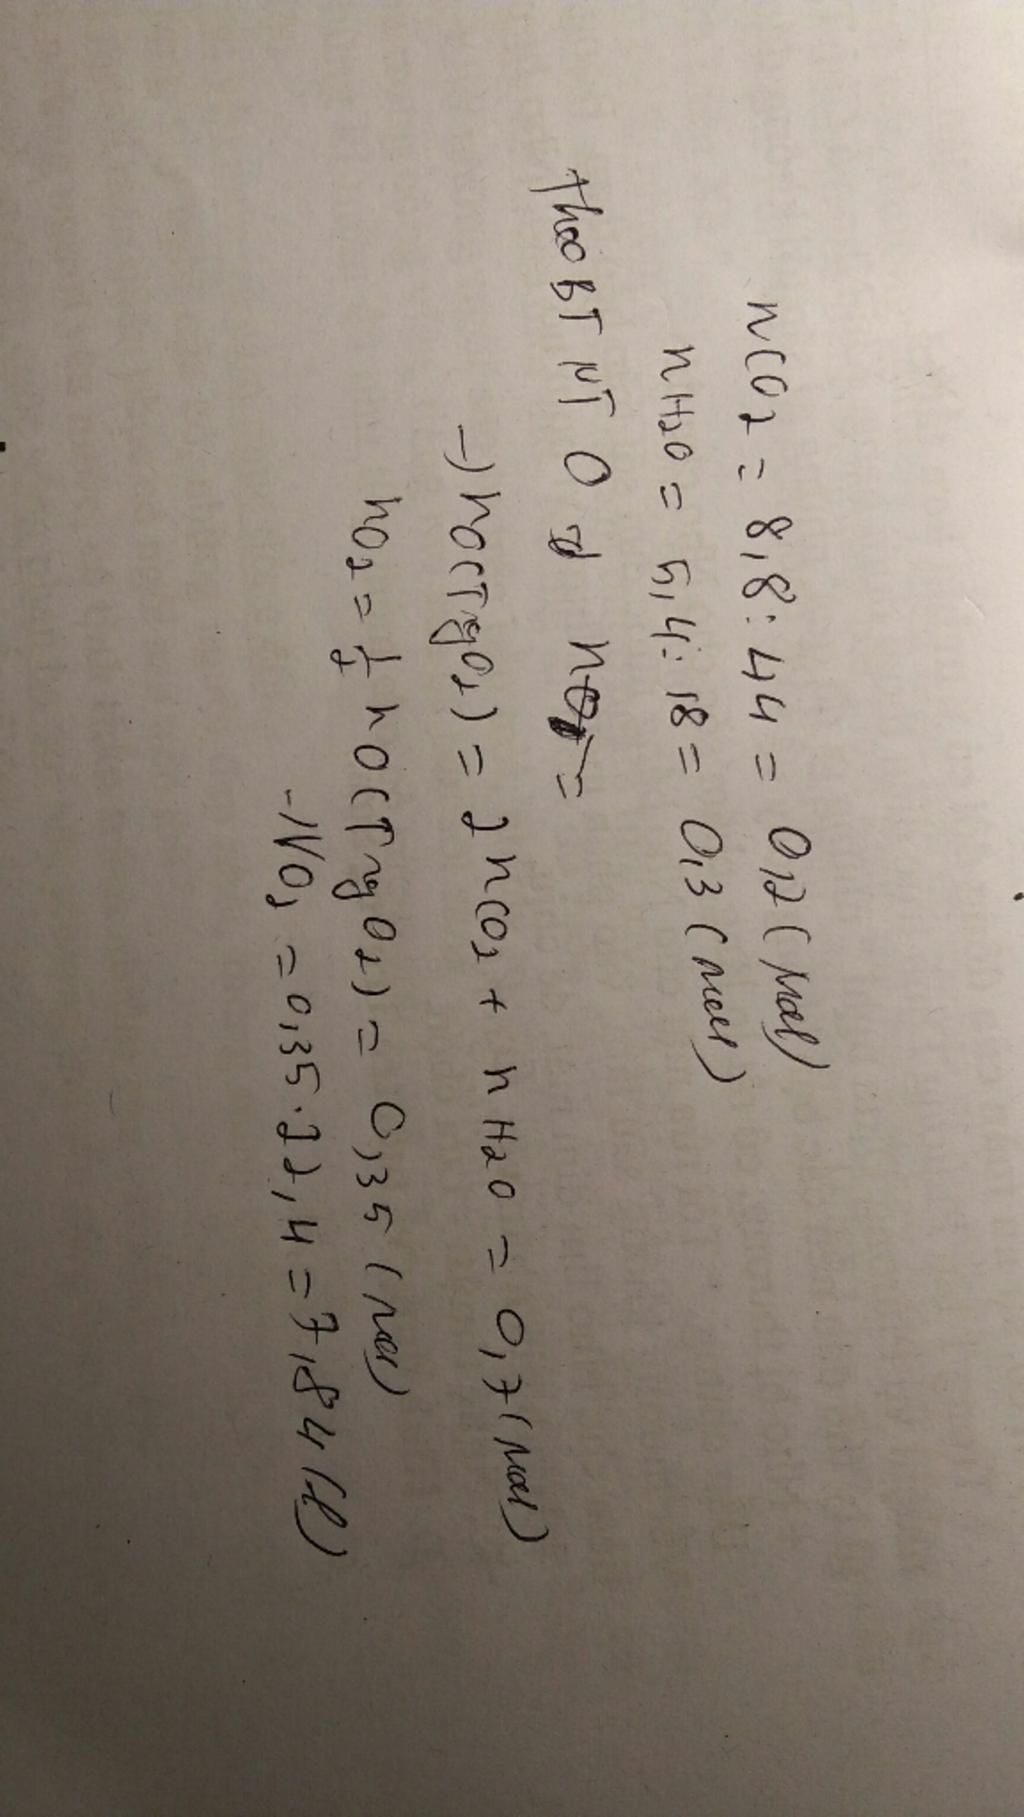 nCO2 = 8,8 : 44 = 0,2 (mol)
nH2O = 5,4 : 18 = 0,3 (mol)
theo BT NT O =
→ nO(TrgO2) = 2nCO2 + nH2O = 0,7 (mol)
nO2 = 1/2 nO(TrgO2) = 0,35 (mol)
→ VO2 = 0,35 . 22,4 = 7,84 (l)